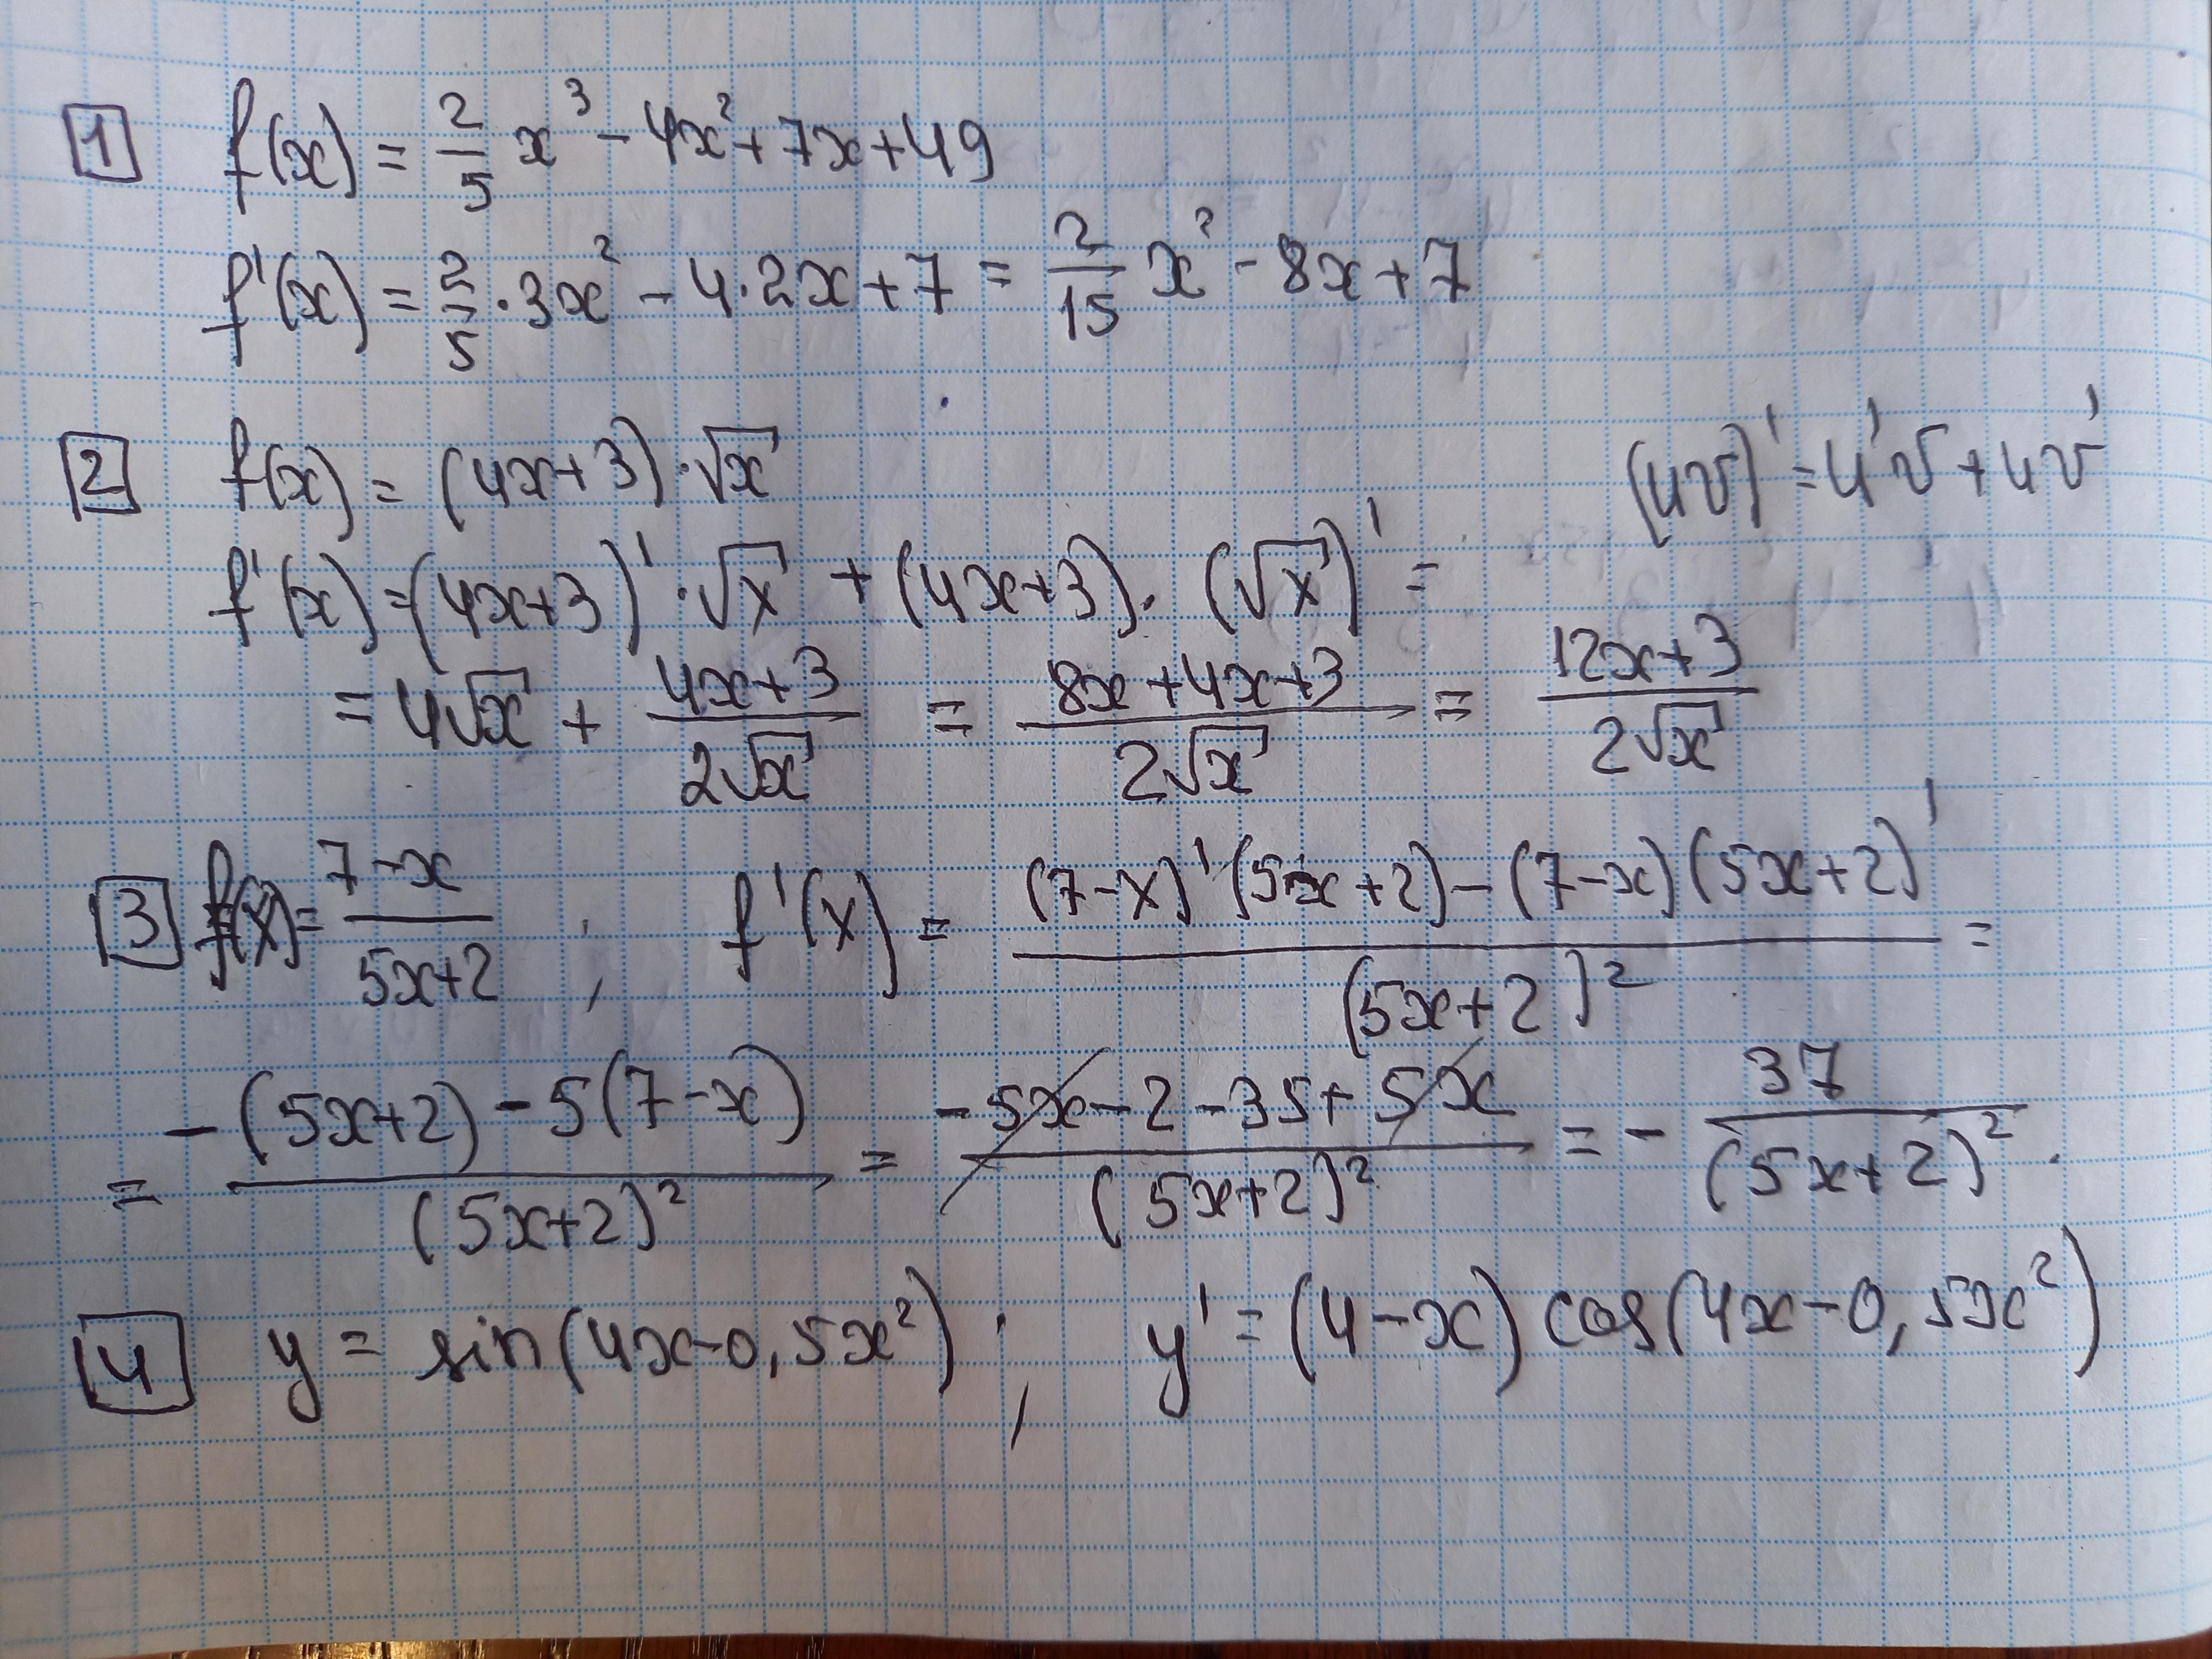 1 f(x) = 2/5 x³ - 4x² + 7x + 49
f'(x) = 2/5 · 3x² - 4·2x + 7 = 2/15 x² - 8x + 7
2 f(x) = (4x+3)·√x (uv)' = u'v + uv'
f'(x) = (4x+3)'·√x + (4x+3)·(√x)' =
= 4√x + (4x+3)/(2√x) = (8x+4x+3)/(2√x) = (12x+3)/(2√x)
3 f(x) = (7-x)/(5x+2) ; f'(x) = ((7-x)'(5x+2) - (7-x)(5x+2)')/(5x+2)² =
= (-(5x+2) - 5(7-x))/(5x+2)² = (-5x - 2 - 35 + 5x)/(5x+2)² = - 37/(5x+2)².
4 y = sin(4x-0,5x²) ; y' = (4-x) cos(4x-0,5x²)